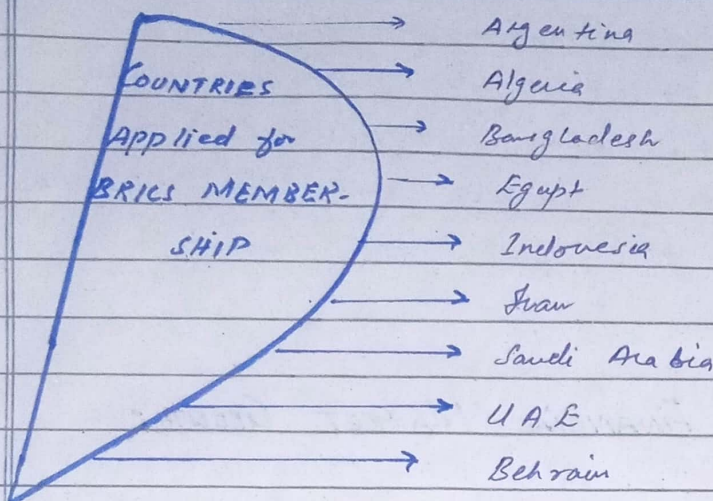 COUNTRIES
Applied for
BRICS MEMBER-
SHIP
Argentina
Algeria
Bangladesh
Egypt
Indonesia
Iran
Saudi Arabia
UAE
Behrain